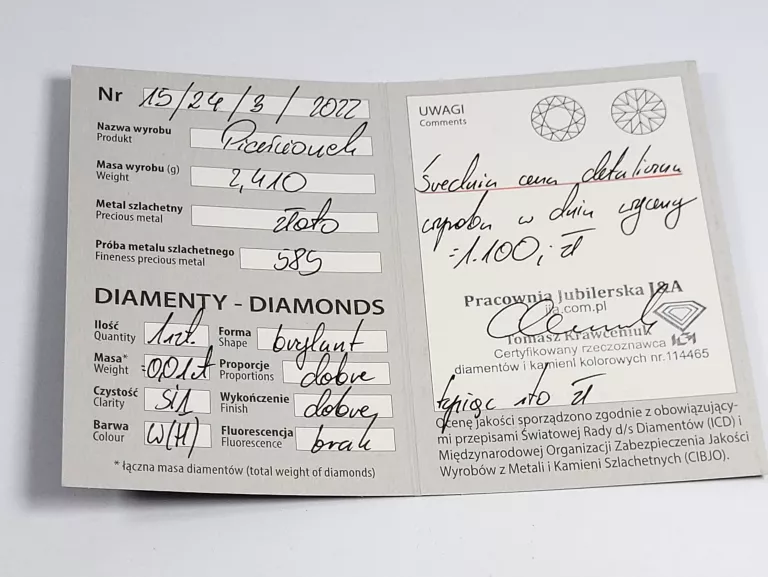 Nr 15/24/3/2022
Nazwa wyrobu
Produkt
Pierścionek
Masa wyrobu (g)
Weight
2,410
Metal szlachetny
Precious metal
złoto
Próba metalu szlachetnego
Fineness precious metal
585
DIAMENTY - DIAMONDS
Ilość
Quantity
1szt.
Forma
Shape
brylant
Masa*
Weight
=0,01ct
Proporcje
Proportions
dobre
Czystość
Clarity
Si1
Wykończenie
Finish
dobrej
Barwa
Colour
W(H)
Fluorescencja
Fluorescence
brak
* łączna masa diamentów (total weight of diamonds)
UWAGI
Comments
Średnia cena detaliczna
wyrobu w dniu wyceny
=1.100,- zł
Pracownia Jubilerska J&A
jia.com.pl
Tomasz Krawceniuk
Certyfikowany rzeczoznawca
diamentów i kamieni kolorowych nr.114465
tysiąc sto zł
Ocenę Jakości sporządzono zgodnie z obowiązujący-
mi przepisami Światowej Rady d/s Diamentów (ICD) i
Międzynarodowej Organizacji Zabezpieczenia Jakości
Wyrobów z Metali i Kamieni Szlachetnych (CIBJO).